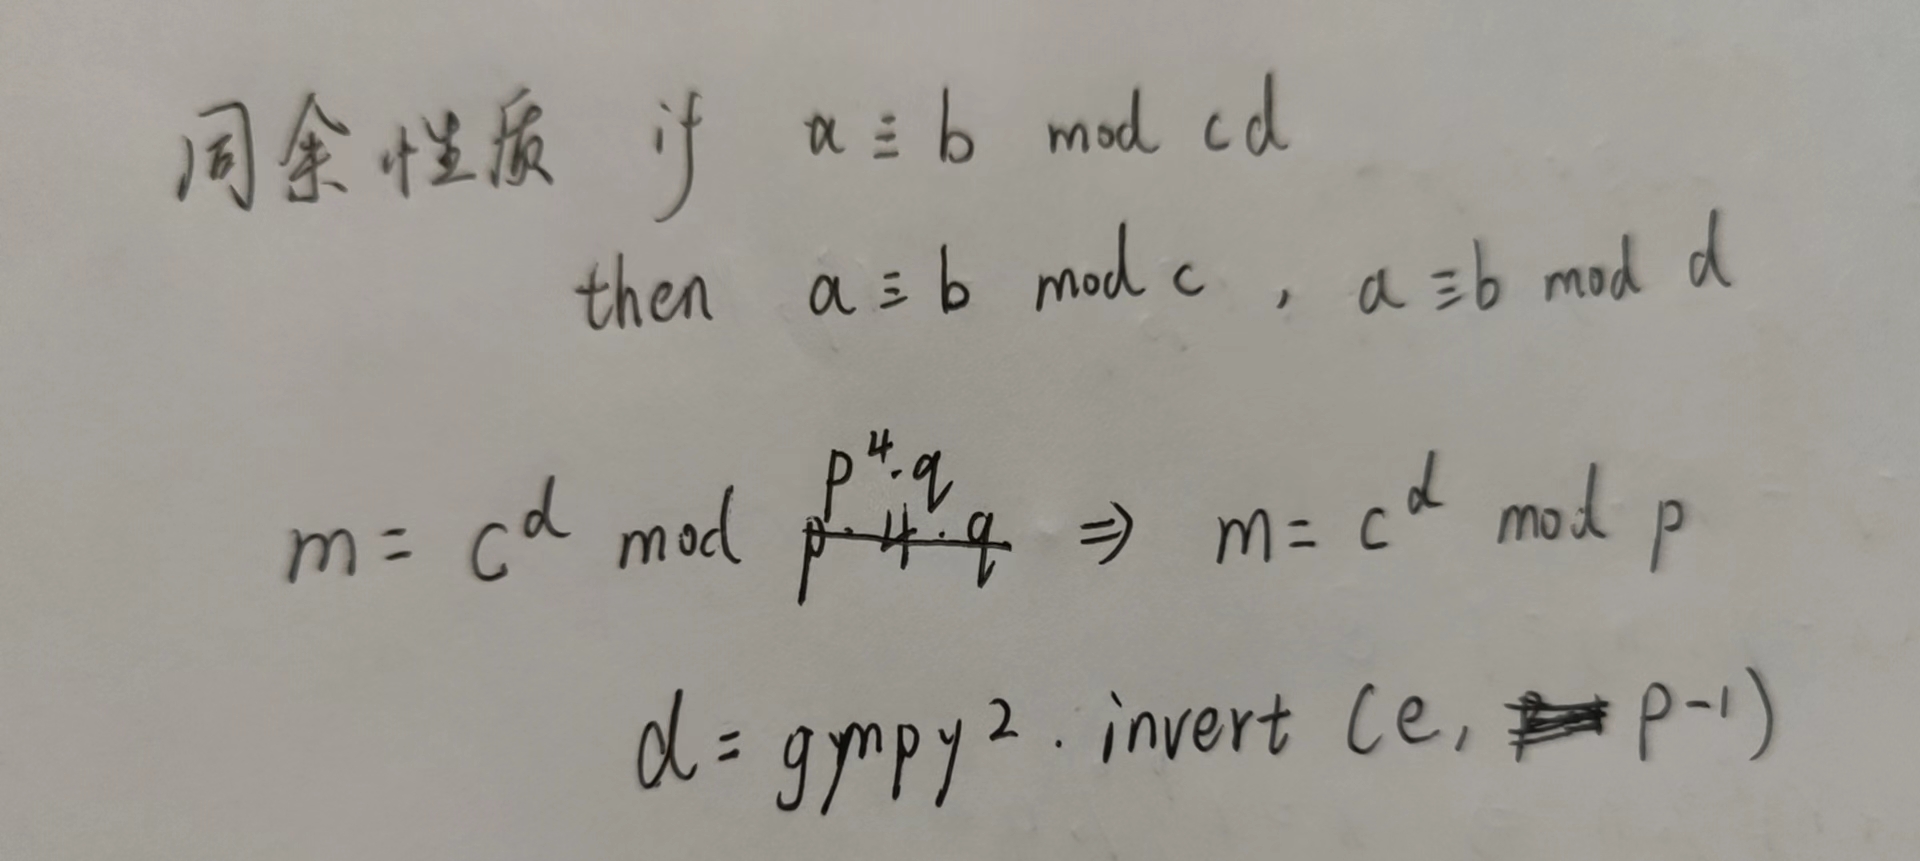 同余性质 if a ≡ b mod cd
then a ≡ b mod c , a ≡ b mod d
p⁴·q
m = c^d mod p·4·q ⇒ m = c^d mod p
d = gympy2 . invert (e, p-1)